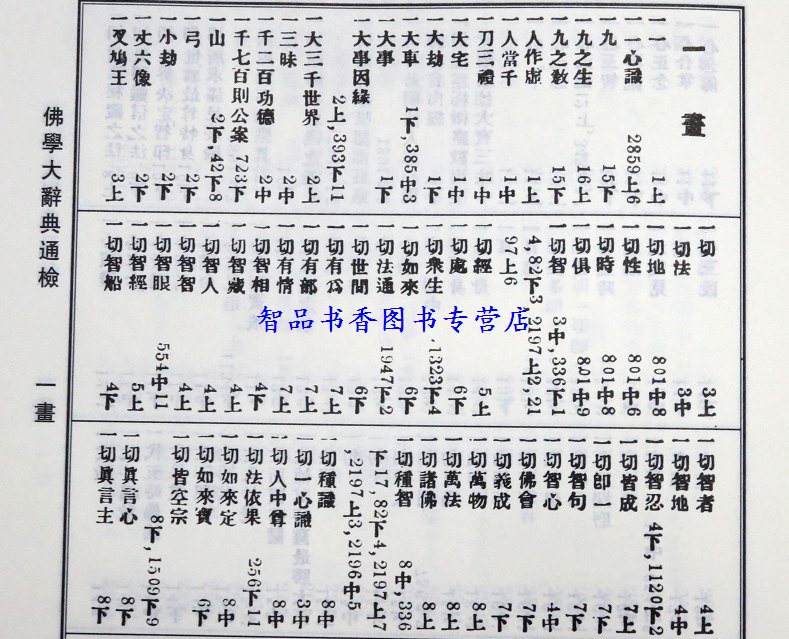 一畫
一 1上
一一心識 2859上6
一九 15下
一九之生 16上
一九之敎 15下
一人作虛 1上
一人當千 1中
一刀三禮 1中
一大宅 1中
一大劫 1下
一大車 1下,385中3
一大事 1下
一大事因緣 2上,393下11
一大三千世界 2上
一三昧 2中
一千二百功德 2中
一千七百則公案 723下
一山 2下,42下8
一弓 2下
一小劫 2下
一丈六像 2下
一叉鳩王 3上
一切 3上
一切法 3中
一切地 801中8
一切性 801中6
一切時 801中8
一切俱 801中9
一切智 3中,336下1
4,82下3,2197上2,21
97上6
一切經 5上
一切處 6下
一切衆生 1323下4
一切如來 6下
一切法通 1947下2
一切世間 6下
一切有爲 7上
一切有部 7上
一切有情 7上
一切智相 4下
一切智藏 4上
一切智人 4上
一切智智 4上
一切智眼 554中11
一切智經 5上
一切智船 4下
一切智者 4上
一切智地 4中
一切智忍 4下,1120下2
一切皆成 7上
一切卽一 7下
一切智句 7下
一切智心 4中
一切佛會 7下
一切義成 7下
一切萬物 8上
一切萬法 8上
一切諸佛 8上
一切種智 8中,336
下17,82下4,2197上17
,2197上3,2196中5
一切種識 8中
一切一心識 3中
一切人中尊 8中
一切法依果 256下11
一切如來定 8中
一切如來寶 6下
一切皆空宗 8下,1509下9
一切眞言心 8下
一切眞言主 8下
佛學大辭典通檢 一畫
智品书香图书专营店